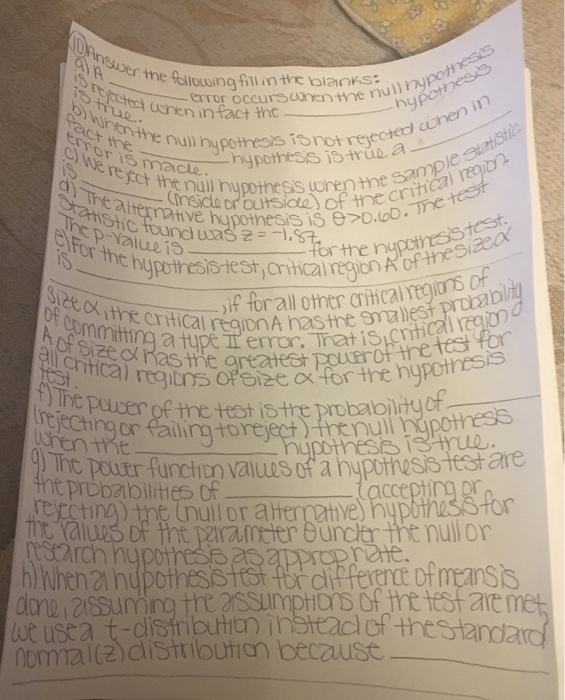 10) Answer the following fill in the blanks:
a) A ________ error occurs when the null hypothesis
is rejected when in fact the ________ hypothesis
is true.
b) When the null hypothesis is not rejected when in
fact the ________ hypothesis is true a ________
error is made.
c) We reject the null hypothesis when the sample statistic
is ________ (inside or outside) of the critical region.
d) The alternative hypothesis is θ>0.60. The test
statistic found was z = -1.87.
The p-value is ________ for the hypothesis test.
e) For the hypothesis test, critical region A of the size α
is ________
________, if for all other critical regions of
size α, the critical region A has the smallest probability
of committing a type II error. That is, critical region
A of size α has the greatest power of the test for
all critical regions of size α for the hypothesis
test.
f) The power of the test is the probability of ________
(rejecting or failing to reject) the null hypothesis
when the ________ hypothesis is true.
g) The power function values of a hypothesis test are
the probabilities of ________ (accepting or
rejecting) the (null or alternative) hypothesis for
the values of the parameter θ under the null or
research hypothesis as appropriate.
h) When a hypothesis test for difference of means is
done, assuming the assumptions of the test are met,
we use a t-distribution instead of the standard
normal (z) distribution because ________